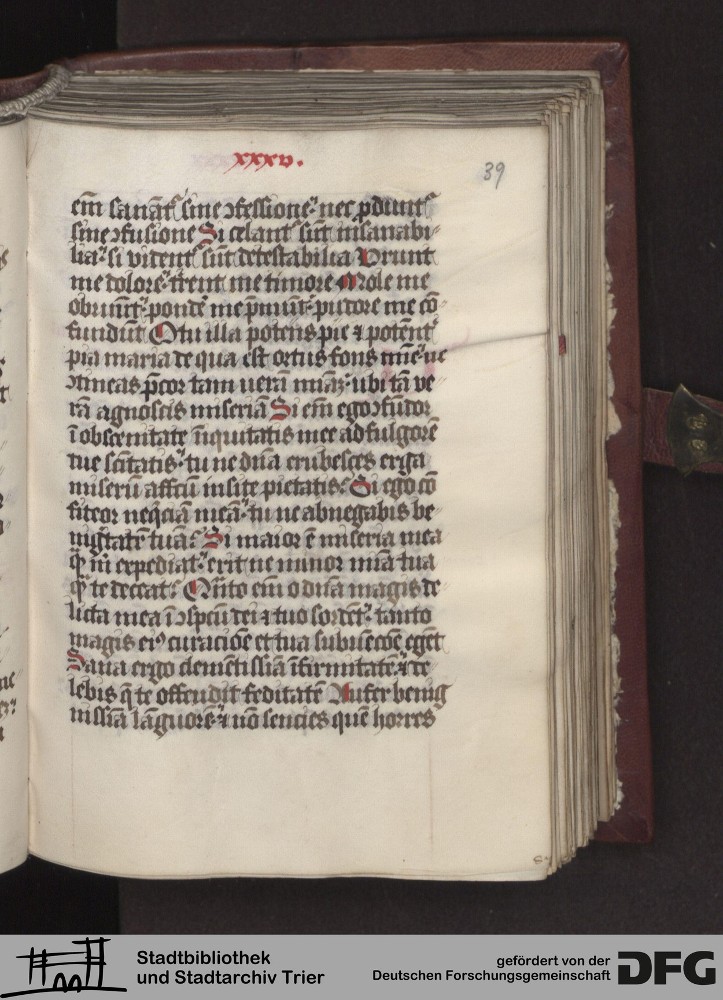 xxxv.
39
em̄ sanant᷑ sine ↄfessione· nec ꝓdunt᷑
sine ↄfusione Si celant᷑ sūt insanabi
lia· si vident᷑ sūt detestabilia Vrunt
me dolore· t͛rent me timore Mole me
obruūt· ponde͛ me p̄muūt· pudore me cō
fundūt O tu illa potens pie ⁊ potent᷑
pia maria de qua est ortus fons mīe· ne
ↄtineas p̄cor tam verā mīaꝫ· ubi tā ve
rā agnoscis miseriā Si em̄ ego ↄfūdor
ī obscenitate īiquitatis mee ad fulgorē
tue sc̄itatis· tu ne dn̄a erubesces erga
miserū affcū insite pietatis Si ego cō
fiteor neq̄ciam meā· tu ne abnegabis be
nigͥtatē tuā Si maior ē miseria mea
qͣꝫ m̄ expediat· erit ne minor mīa tua
qͣꝫ te deceat Qn̄to em̄ o dn̄a magis de
licta mea ī ↄspcū dei ⁊ tuo sordēt· tanto
magis eiꝰ curacōe et tua subuēcōe egēt
Sana ergo clemētissīa īfirmitatē· ⁊ de
lebis q̄ te offendit feditatē Aufer benig
nissīa lāguorē· ⁊ nō sencies quē horres
Stadtbibliothek
und Stadtarchiv Trier
gefördert von der
Deutschen Forschungsgemeinschaft
DFG